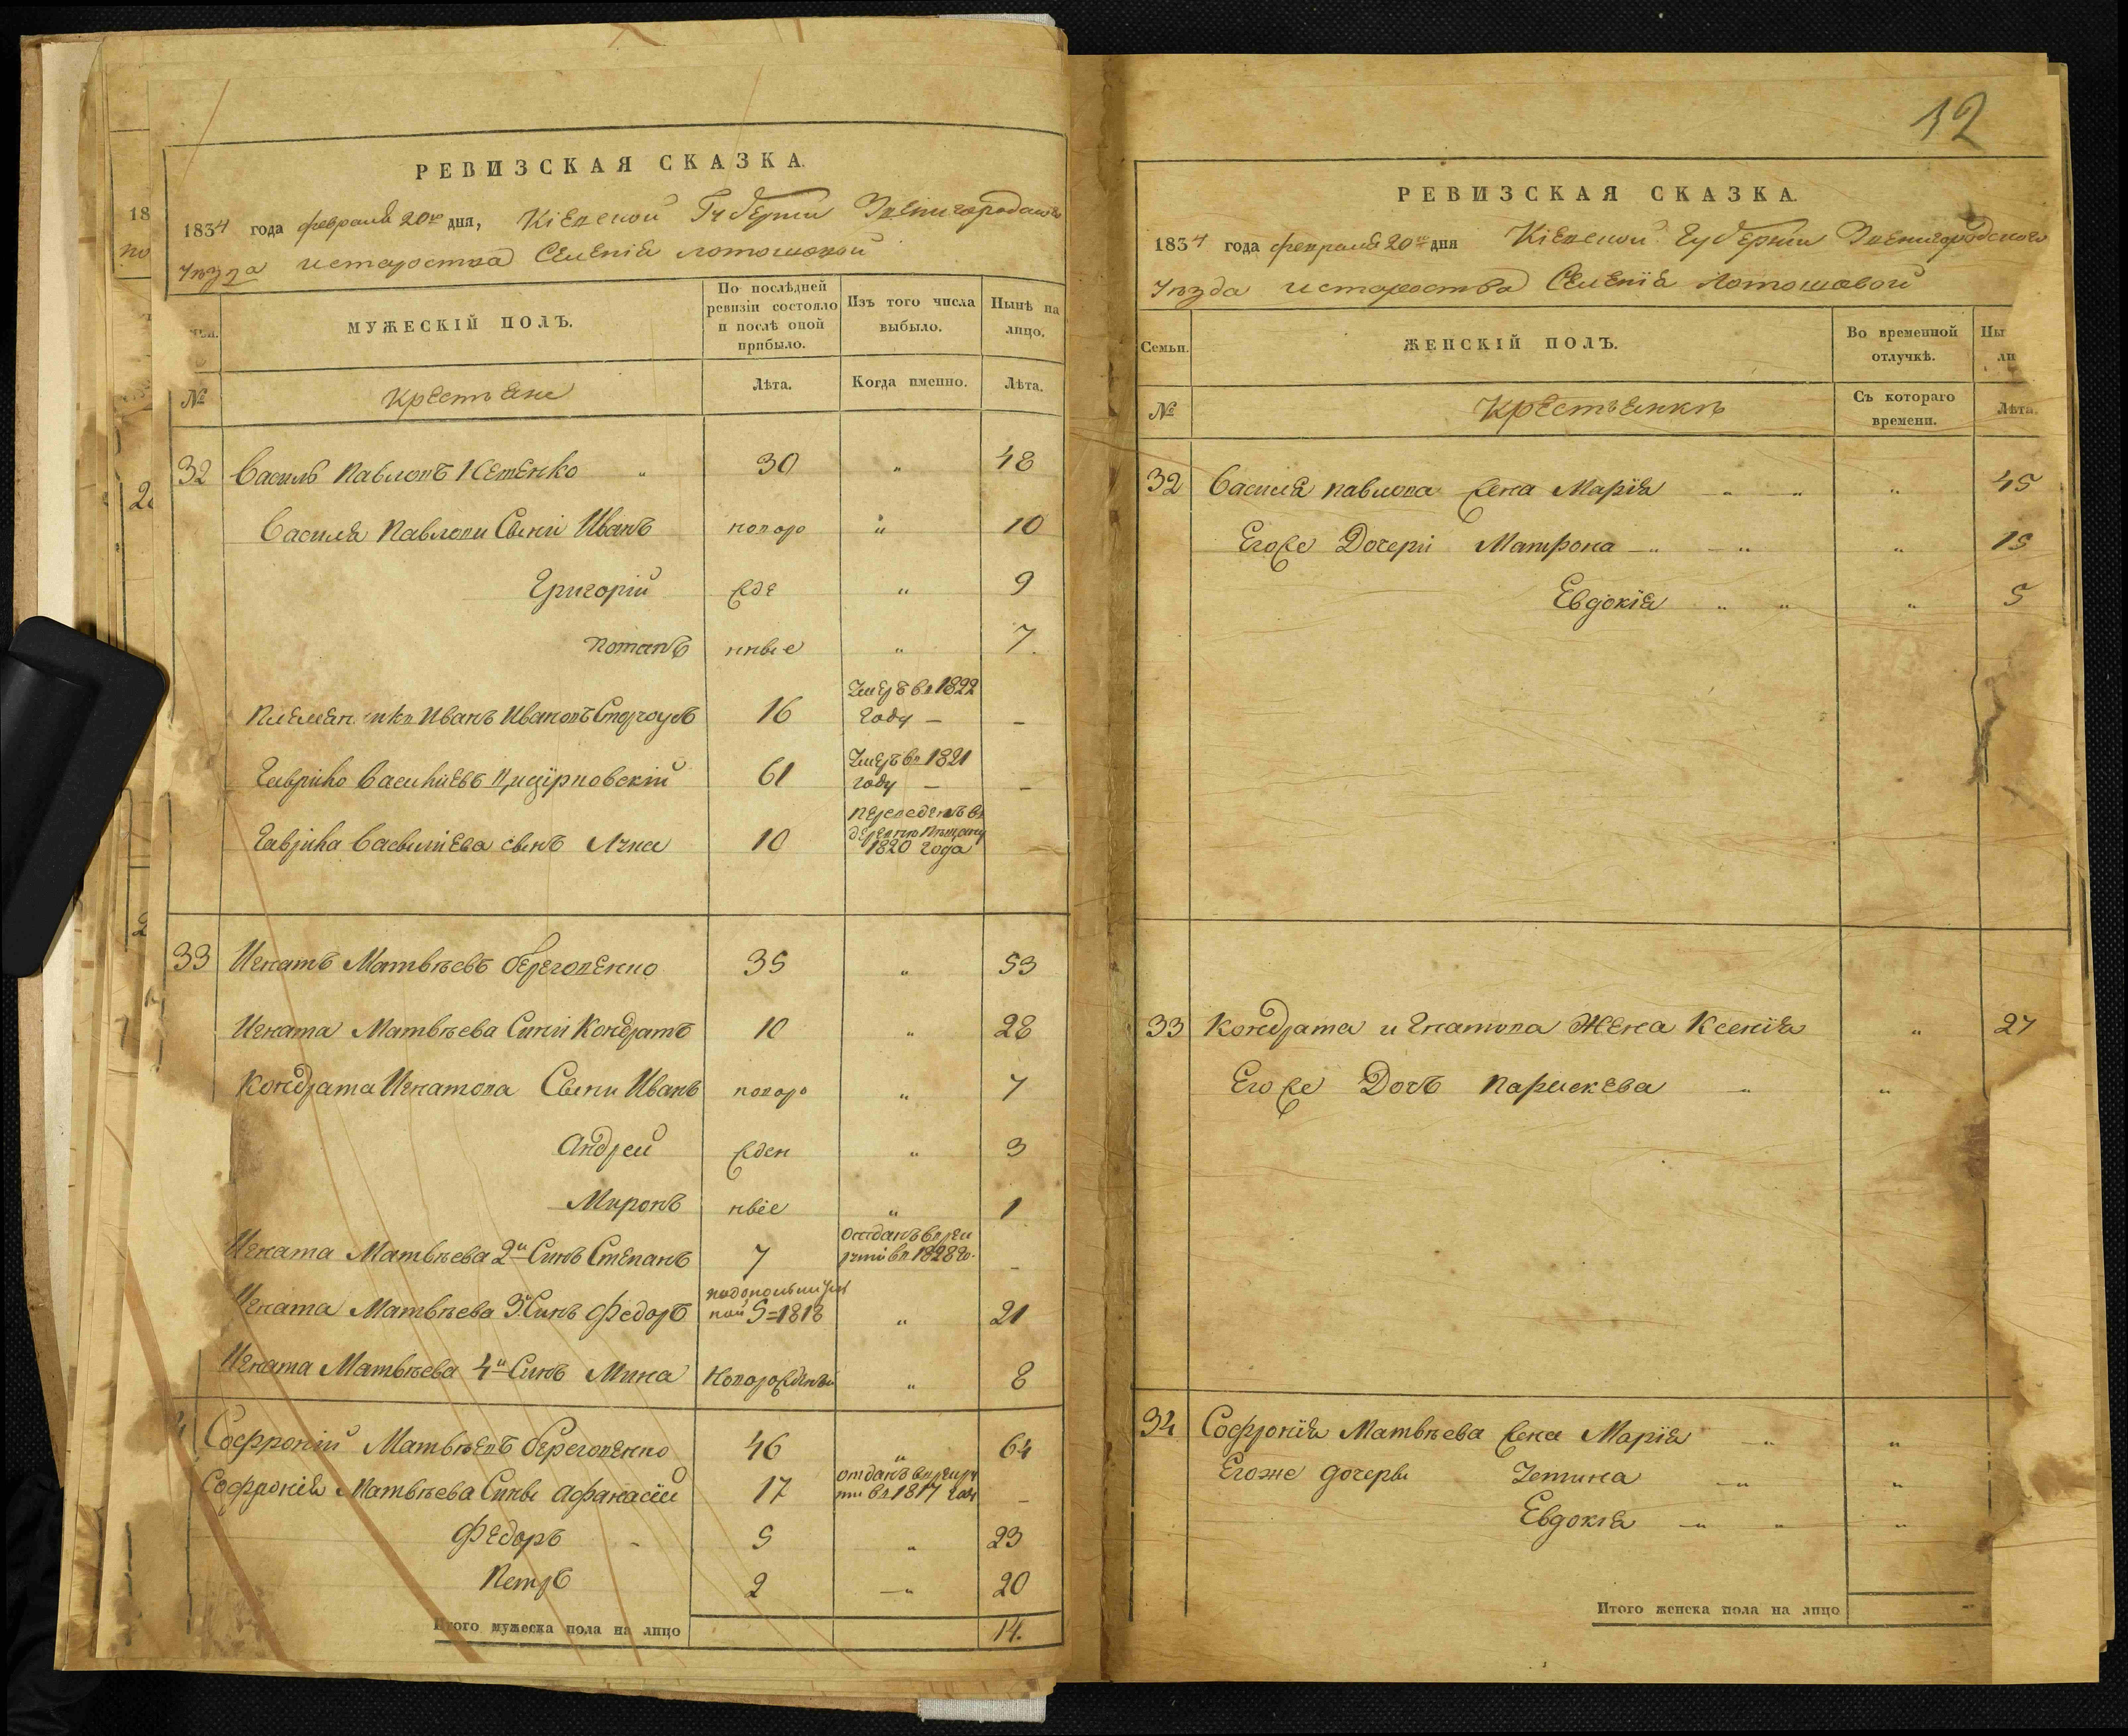 РЕВИЗСКАЯ СКАЗКА.
1834 года февраля 20го дня, Кіевской Губерніи Звенигородскаго
Уѣзда и староства Селенія Лотошовой
МУЖЕСКІЙ ПОЛЪ.
По послѣдней ревизіи состояло и послѣ оной прибыло.
Изъ того числа выбыло.
Нынѣ на лицо.
№ Крестьяне Лѣта. Когда именно. Лѣта.
32 Василь Павловъ Кетенко " 30 " 48
Василя Павлови Сыни Иванъ новоро " 10
Григорій жде " 9
Потапъ нные " 7
Племенники Иванъ Ивановъ 16 Умеръ въ 1822 году — –
Гаврило Васильевъ 61 Умеръ въ 1821 году — –
Гаврила Васильева сынъ Лука 10 Переведенъ въ деревню 1820 года
33 Игнатъ Матвѣевъ Береговенко 35 " 53
Игната Матвѣева Сини Кондратъ 10 " 28
Кондрата Игнатова Сыни Иванъ новоро " 7
Андрей жден " 3
Миронъ ніе " 1
Игната Матвѣева 2й Синъ Степанъ 7 отданъ в рекруты въ 1828 го. –
Игната Матвѣева 3й Синъ Федоръ 5=1818 " 21
Игната Матвѣева 4й Синъ Мина Новорожденый " 8
Софроній Матвѣевъ Береговенко 46 " 64
Софронія Матвѣева Сины Афанасій 17 отданъ в рекруты въ 1817 году –
Федоръ - 5 " 23
Петръ 2 —" 20
Итого мужеска пола на лицо 14.
12
РЕВИЗСКАЯ СКАЗКА.
1834 года февраля 20го дня Кіевской Губерніи Звенигородского
Уѣзда и староства Селенія Лотошовой
Семьи. ЖЕНСКІЙ ПОЛЪ. Во временной отлучкѣ. Ны ли
№ Крестьянкѣ Съ котораго времени. Лѣта.
32 Василя Павлова жена Марія " " " 45
Егоже Дочери Матрона " " " 15
Евдокія " " " 5
33 Кондрата Игнатова Жена Ксенія " 27
Егоже Дочъ Параскева " "
34 Софронія Матвѣева жена Марія " "
Егоже дочеры Устина " "
Евдокія " " "
Итого женска пола на лицо